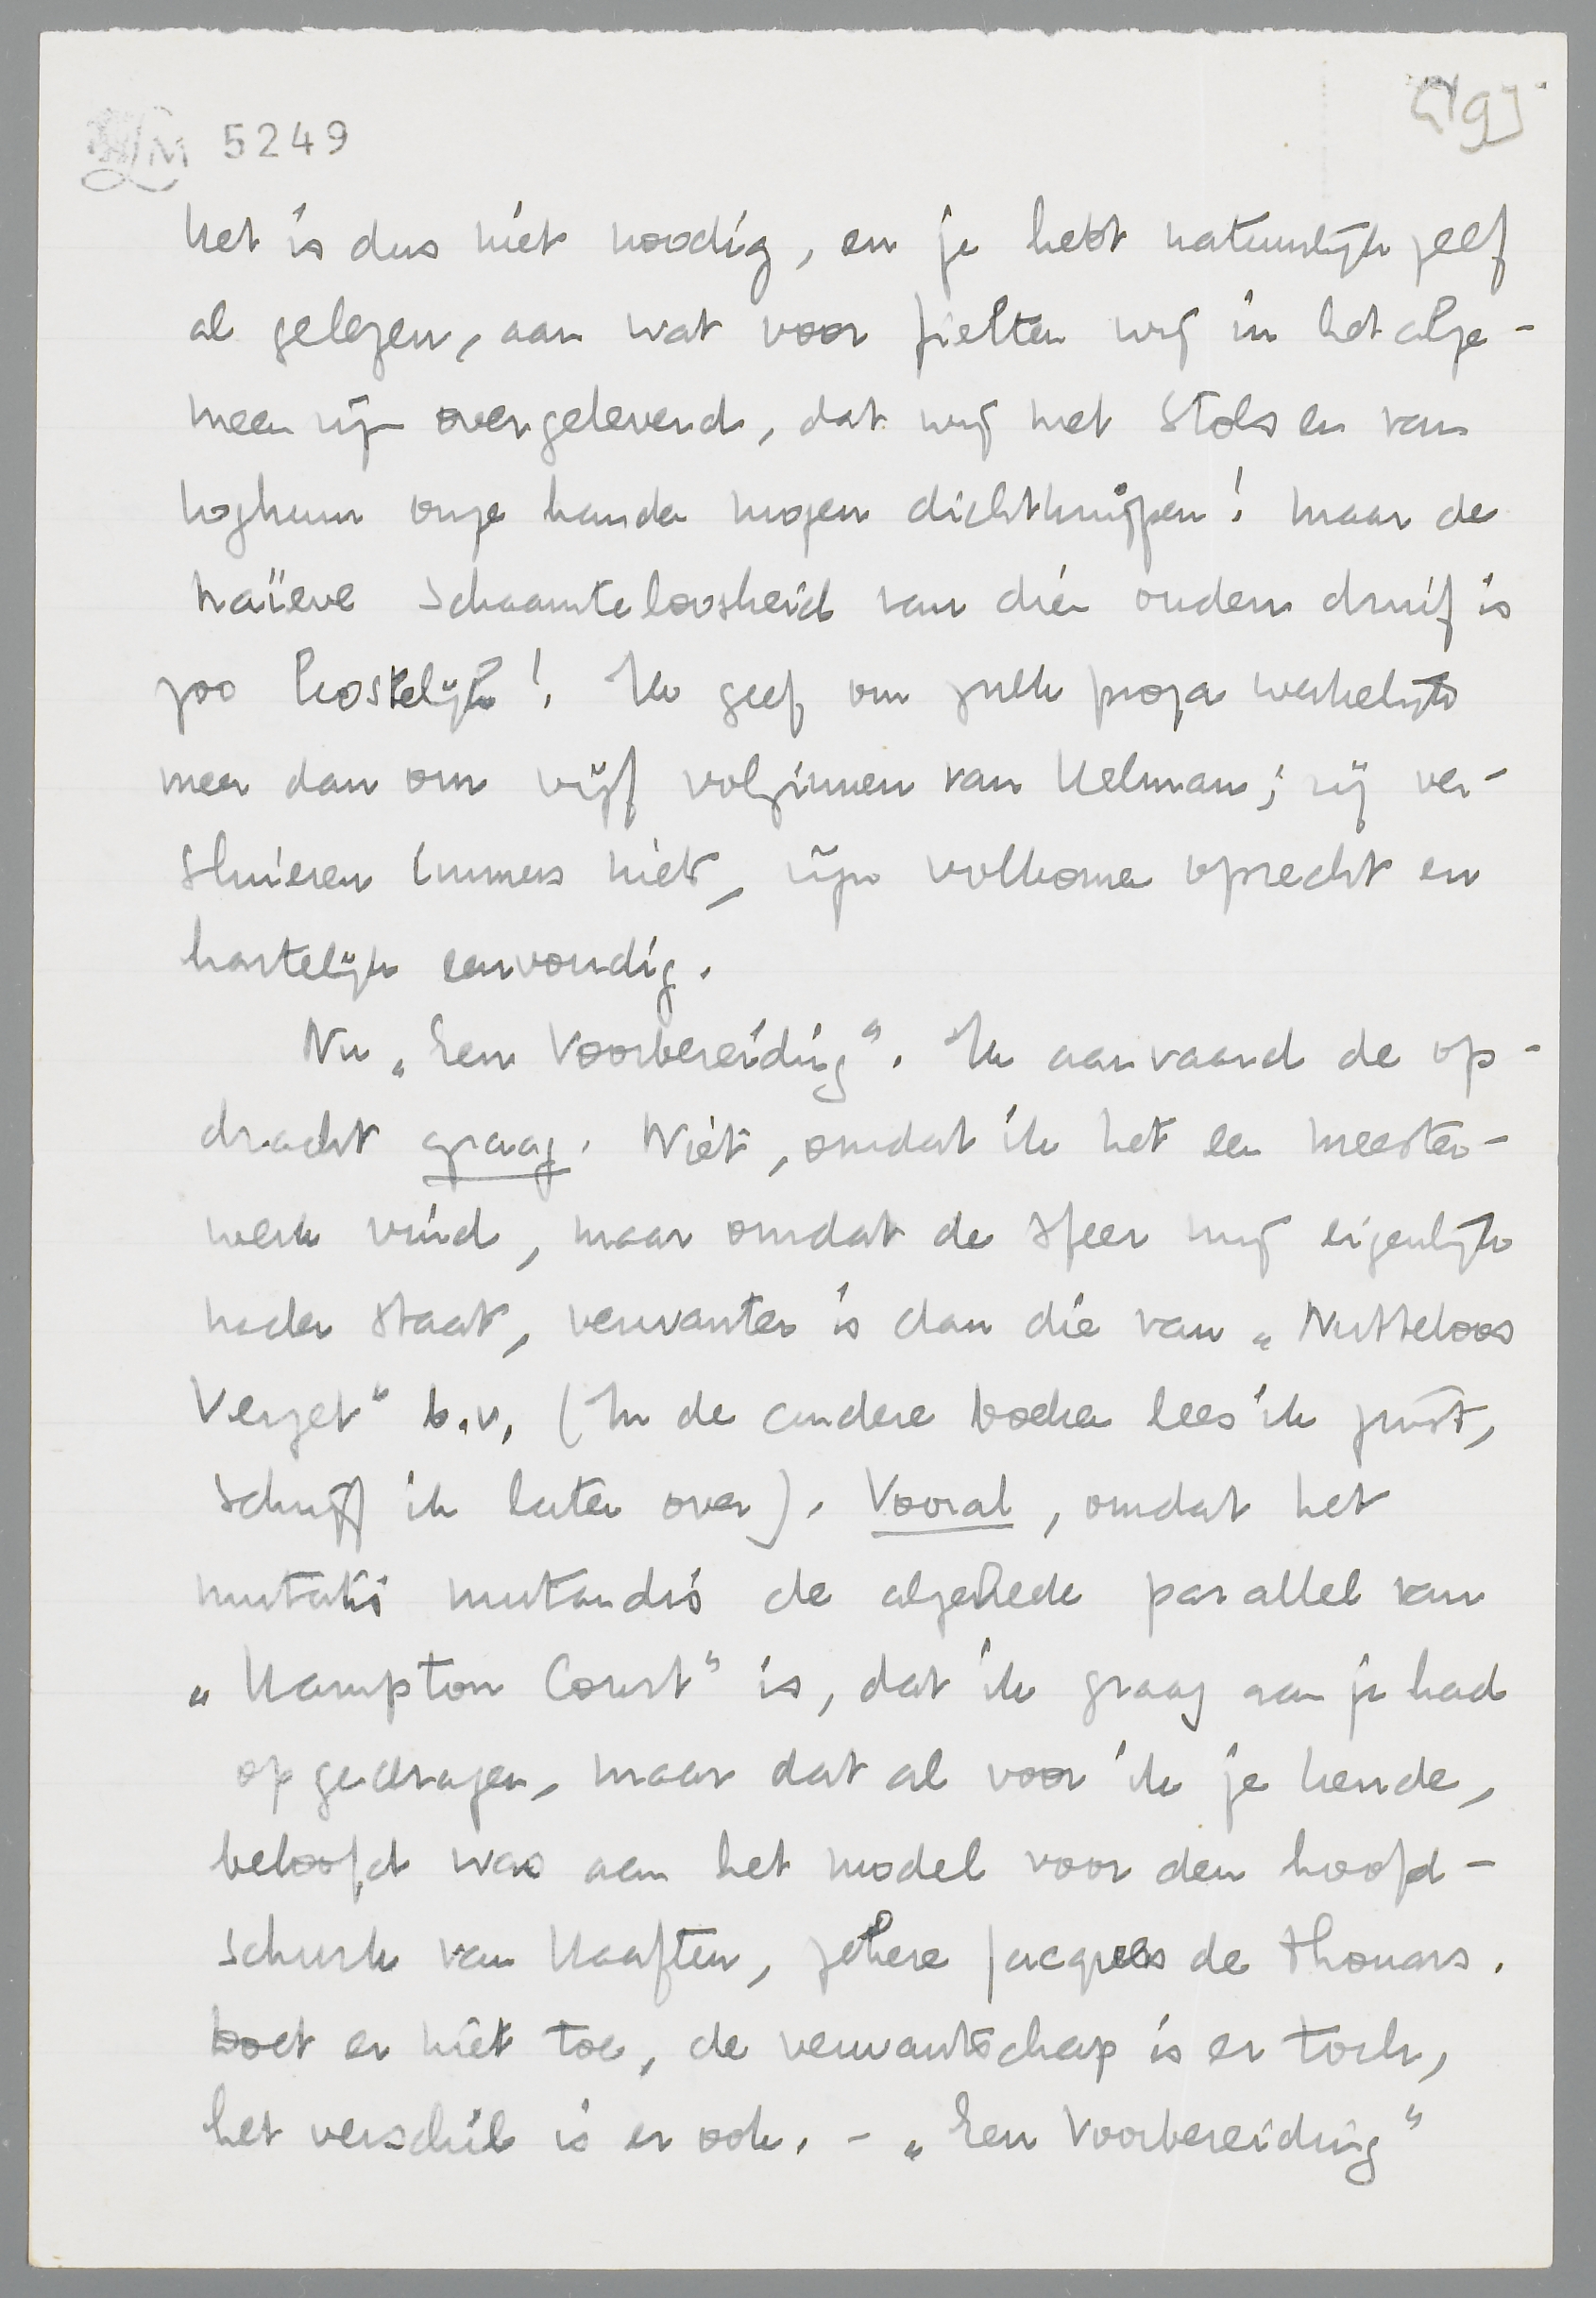 LM 5249
het is dus niet noodig, en je hebt natuurlijk zelf
al gelezen, aan wat voor fielten wij in het alge-
meen zijn overgeleverd, dat wij met Stols en van
Loghum onze handen mogen dichtknijpen! Maar de
naïeve schaamteloosheid van dien ouden druif is
zoo kostelijk! Ik geef om zulk proza werkelijk
meer dan om vijf volzinnen van Helman; zij ver-
sluieren immers niets, zijn volkomen oprecht en
hartelijk eenvoudig.
Nu „Een Voorbereiding”. Ik aanvaard de op-
dracht graag. Niet, omdat ik het een meester-
werk vind, maar omdat de sfeer mij eigenlijk
nader staat, verwanter is dan die van „Nutteloos
Verzet” b.v. (In de andere boeken lees ik juist,
schrijf ik later over). Vooral, omdat het
mutatis mutandis de algeheele parallel van
„Hampton Court” is, dat ik graag aan je had
opgedragen, maar dat al voor ik je kende,
beloofd was aan het model voor den hoofd-
schurk van Haaften, zekere Jacques de Thouars.
Doet er niet toe, de verwantschap is er toch,
het verschil is er ook. - „Een Voorbereiding”